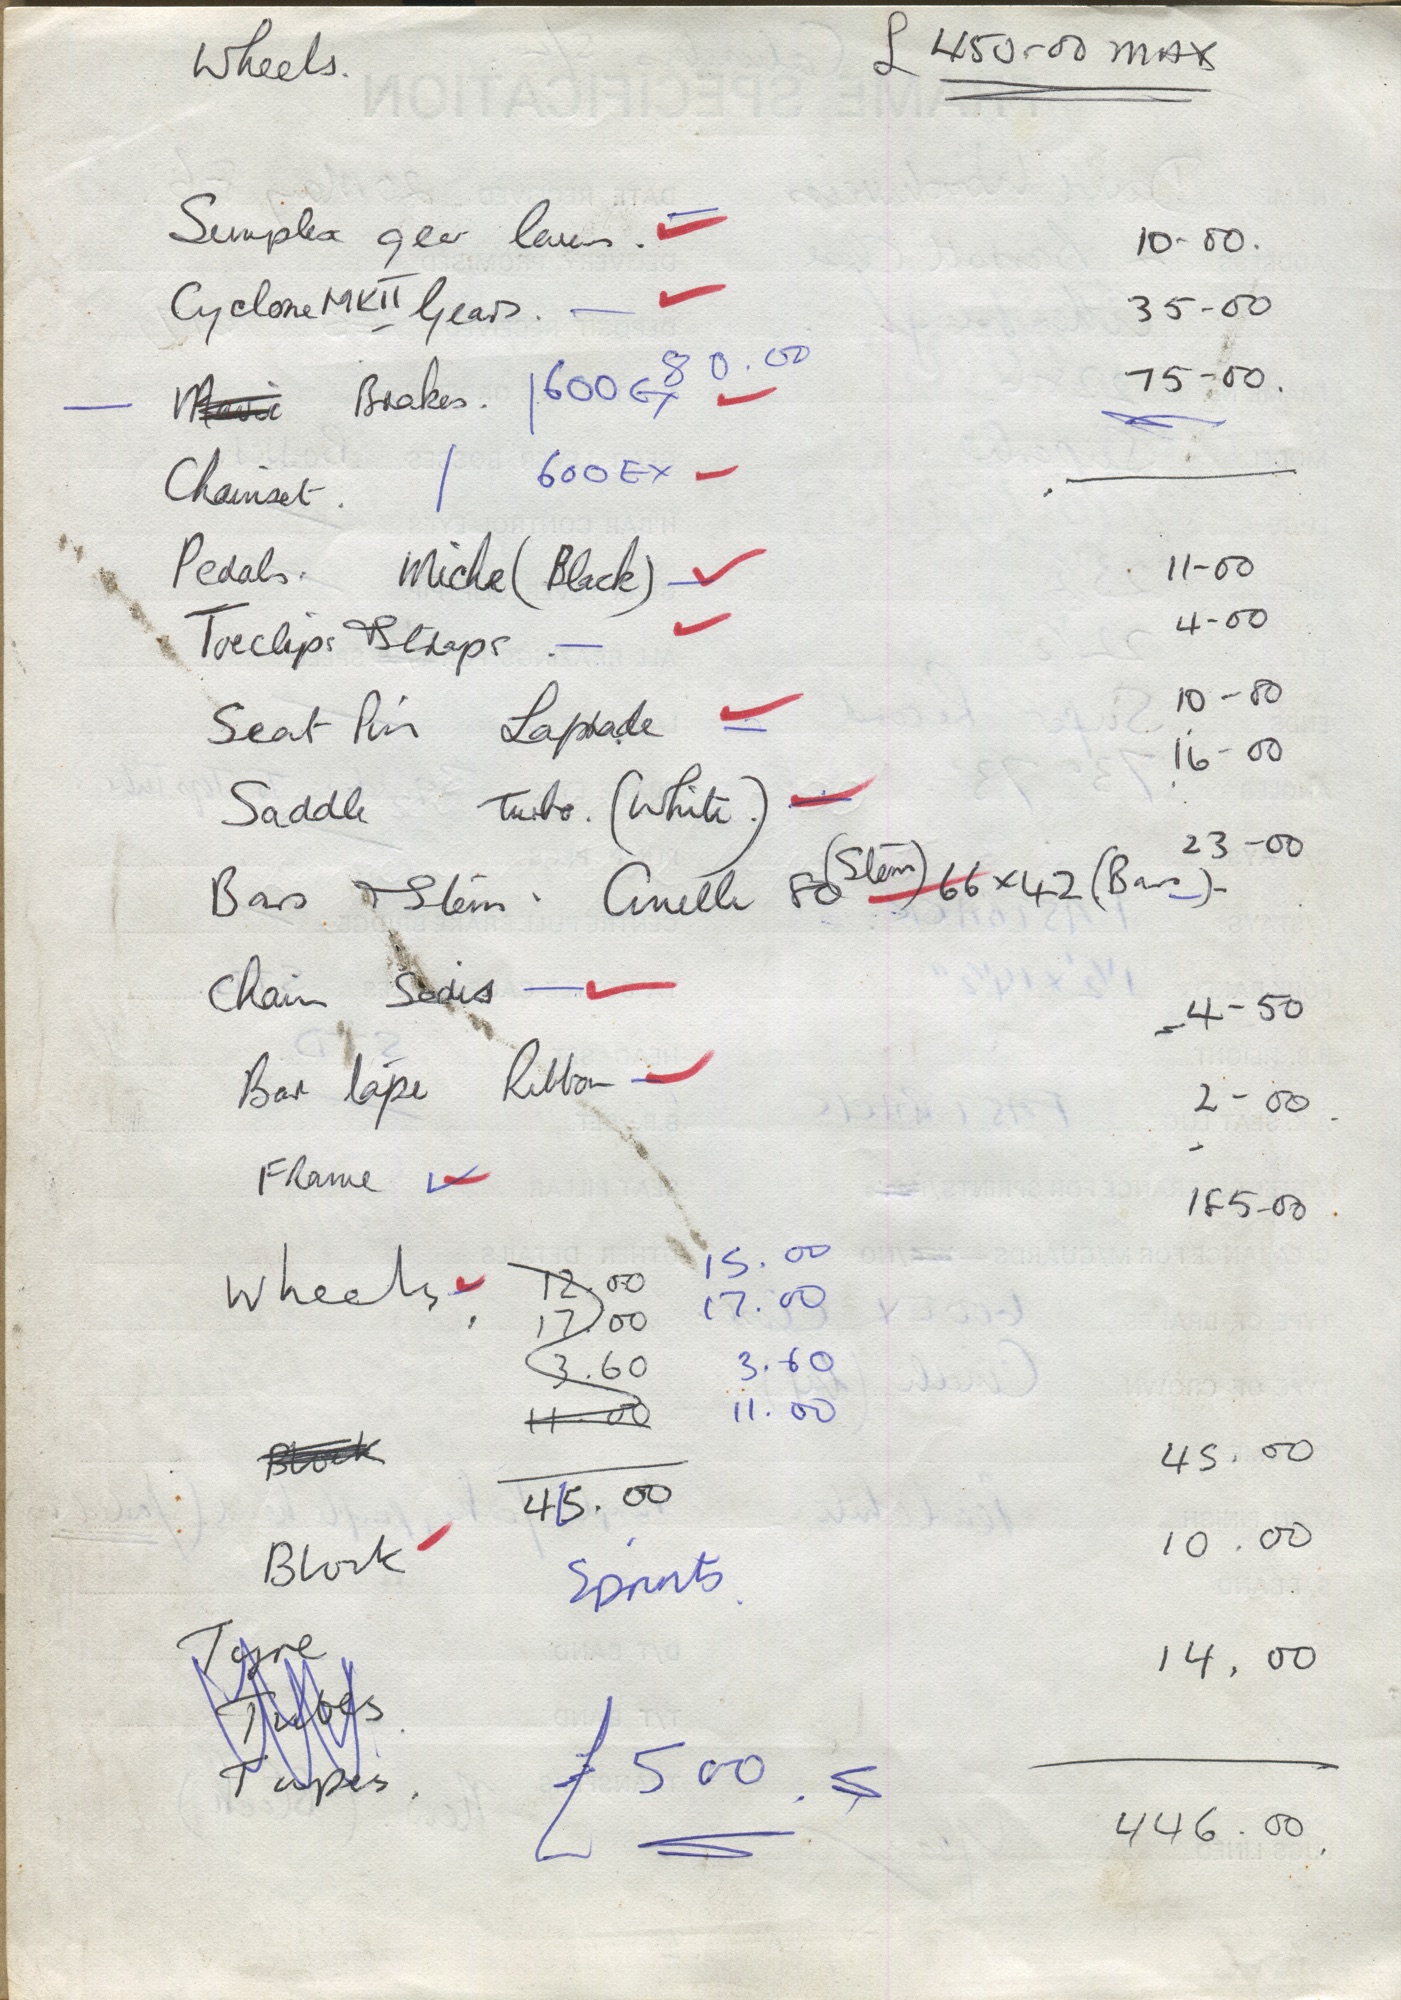 Wheels. £ 450-00 MAX
Simplex gear levers. 10-00.
Cyclone MKII Gears. — 35-00
— Mavic Brakes. 600EX 80.00 75-00.
Chainset. 600EX —
Pedals. Miche (Black) — 11-00
Toeclips & Straps — 4-00
Seat Pin Laprade 10-00
Saddle Turbo. (White.) 16-00
Bars & Stem. Cinelli 80 (Stem) 66 x 42 (Bars) 23-00
Chain Sedis — 4-50
Bar tape Ribbon — 2-00
FRame 185-00
Wheels. 12.00 15.00
17.00 17.00
3.60 3.60
11.00 11.00
Block 45.00
45.00
Block Sprints. 10.00
Tyre 14.00
Tubes.
Tapes. £500.
446.00